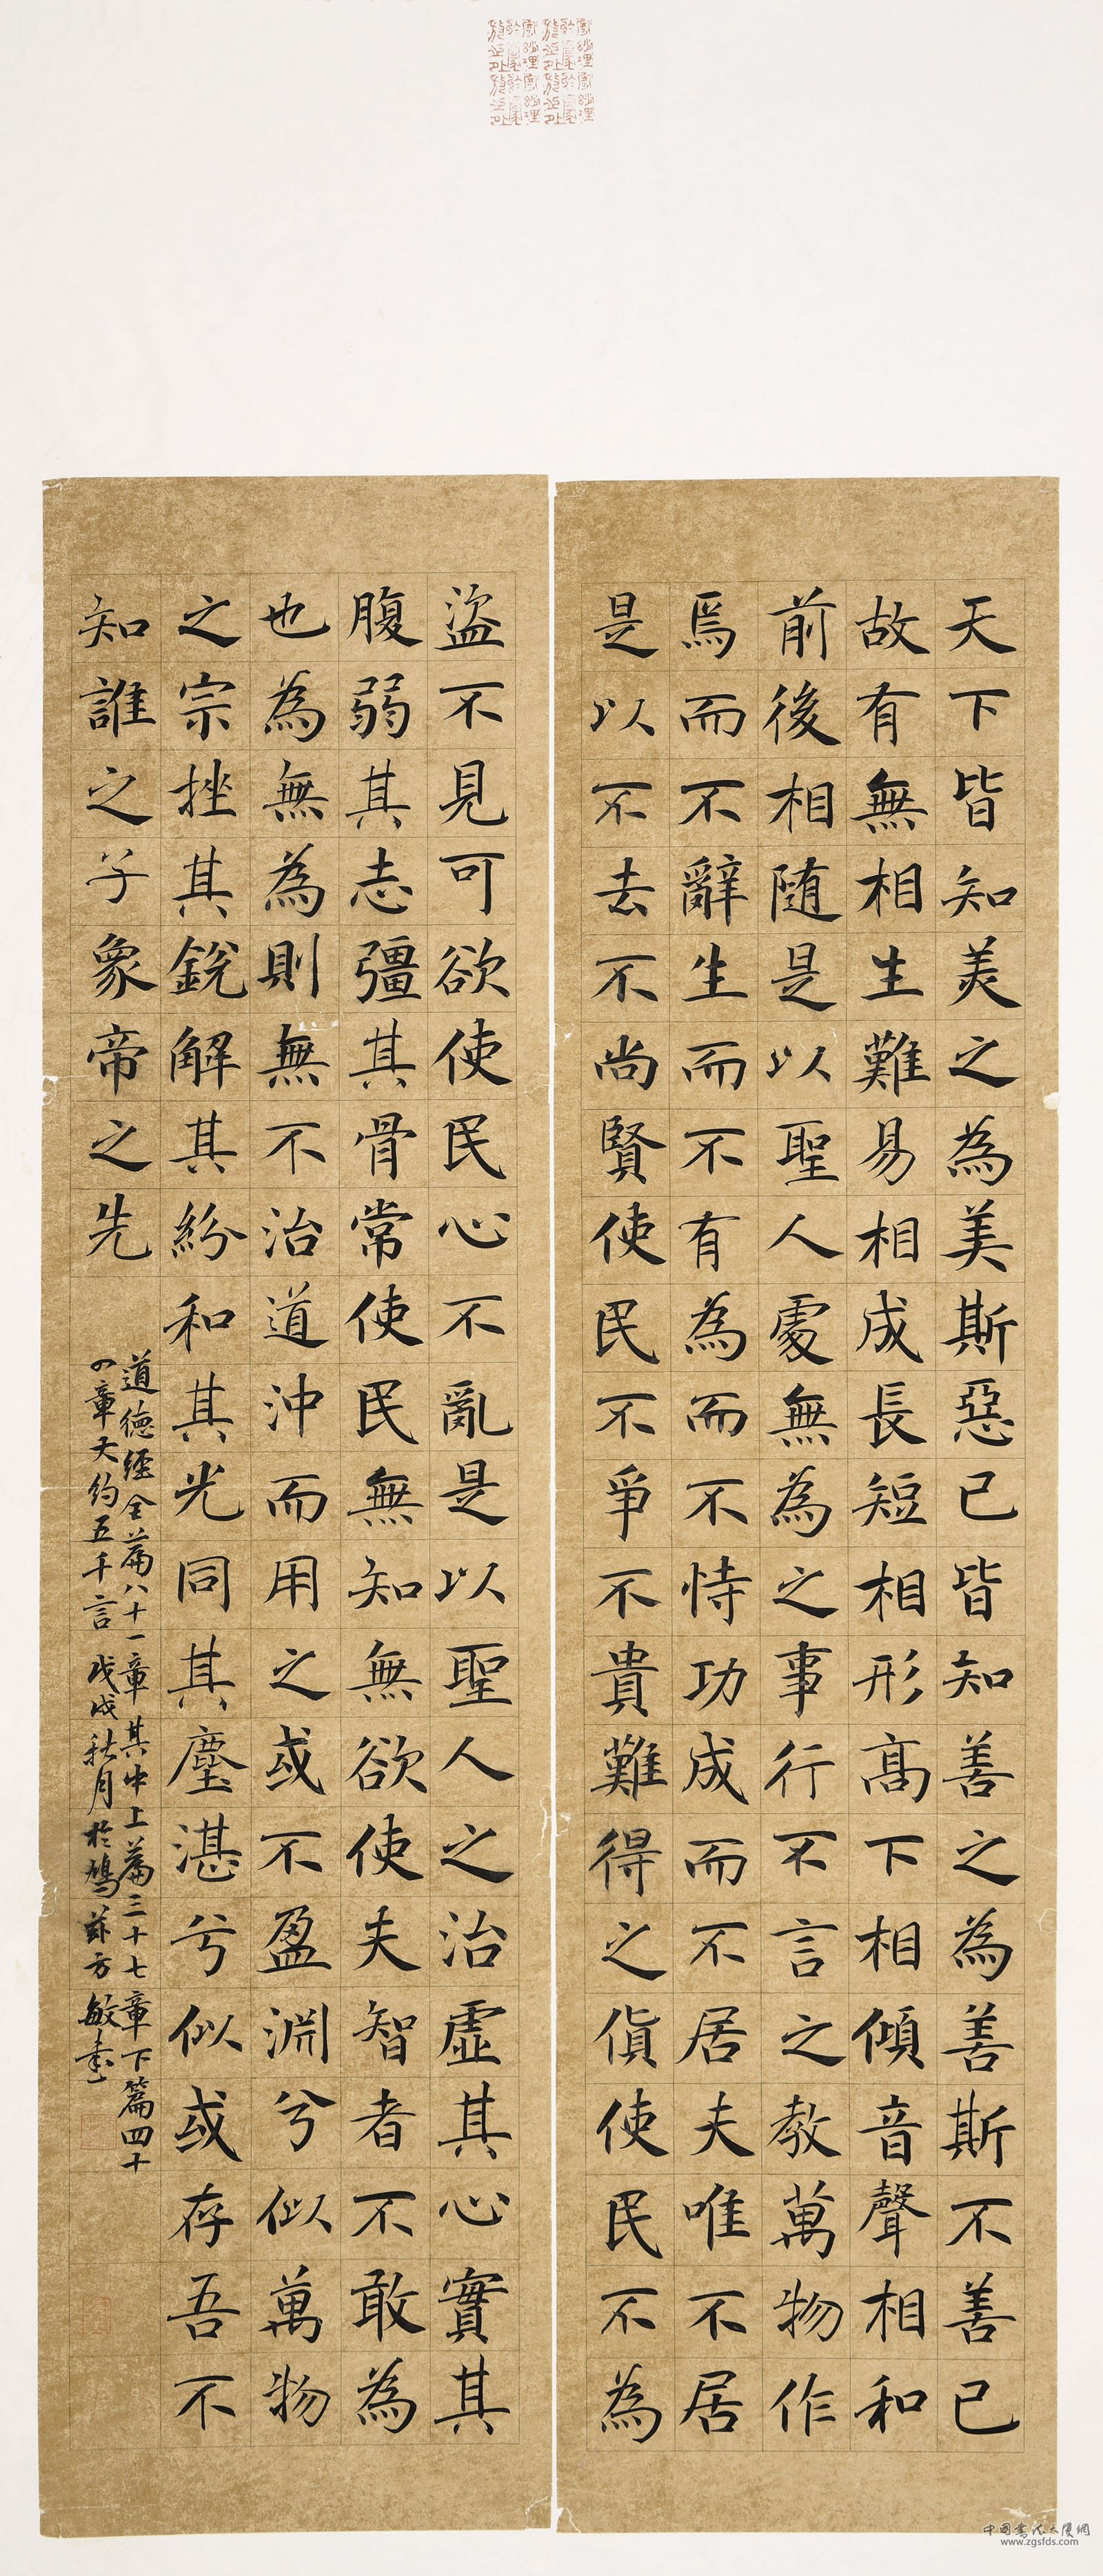 天下皆知美之為美斯惡已皆知善之為善斯不善已
故有無相生難易相成長短相形高下相傾音聲相和
前後相随是以聖人處無為之事行不言之教萬物作
焉而不辭生而不有為而不恃功成而不居夫唯不居
是以不去不尚賢使民不爭不貴難得之貨使民不為
盜不見可欲使民心不亂是以聖人之治虛其心實其
腹弱其志彊其骨常使民無知無欲使夫智者不敢為
也為無為則無不治道沖而用之或不盈淵兮似萬物
之宗挫其銳解其紛和其光同其塵湛兮似或存吾不
知誰之子象帝之先
道德經全篇八十一章其中上篇三十七章下篇四十
四章大約五千言戊戌秋月於鳩茲方敏書
中國書法大廈網
www.zgsfds.com